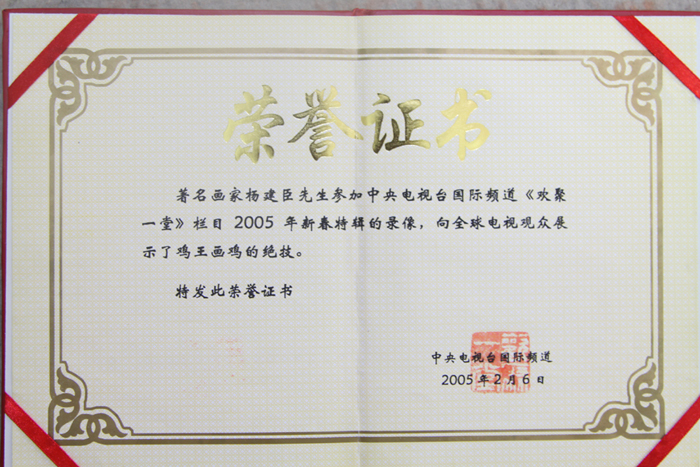 荣誉证书
著名画家杨建臣先生参加中央电视台国际频道《欢聚
一堂》栏目 2005 年新春特辑的录像，向全球电视观众展
示了鸡王画鸡的绝技。
特发此荣誉证书
中央电视台国际频道
2005 年 2 月 6 日